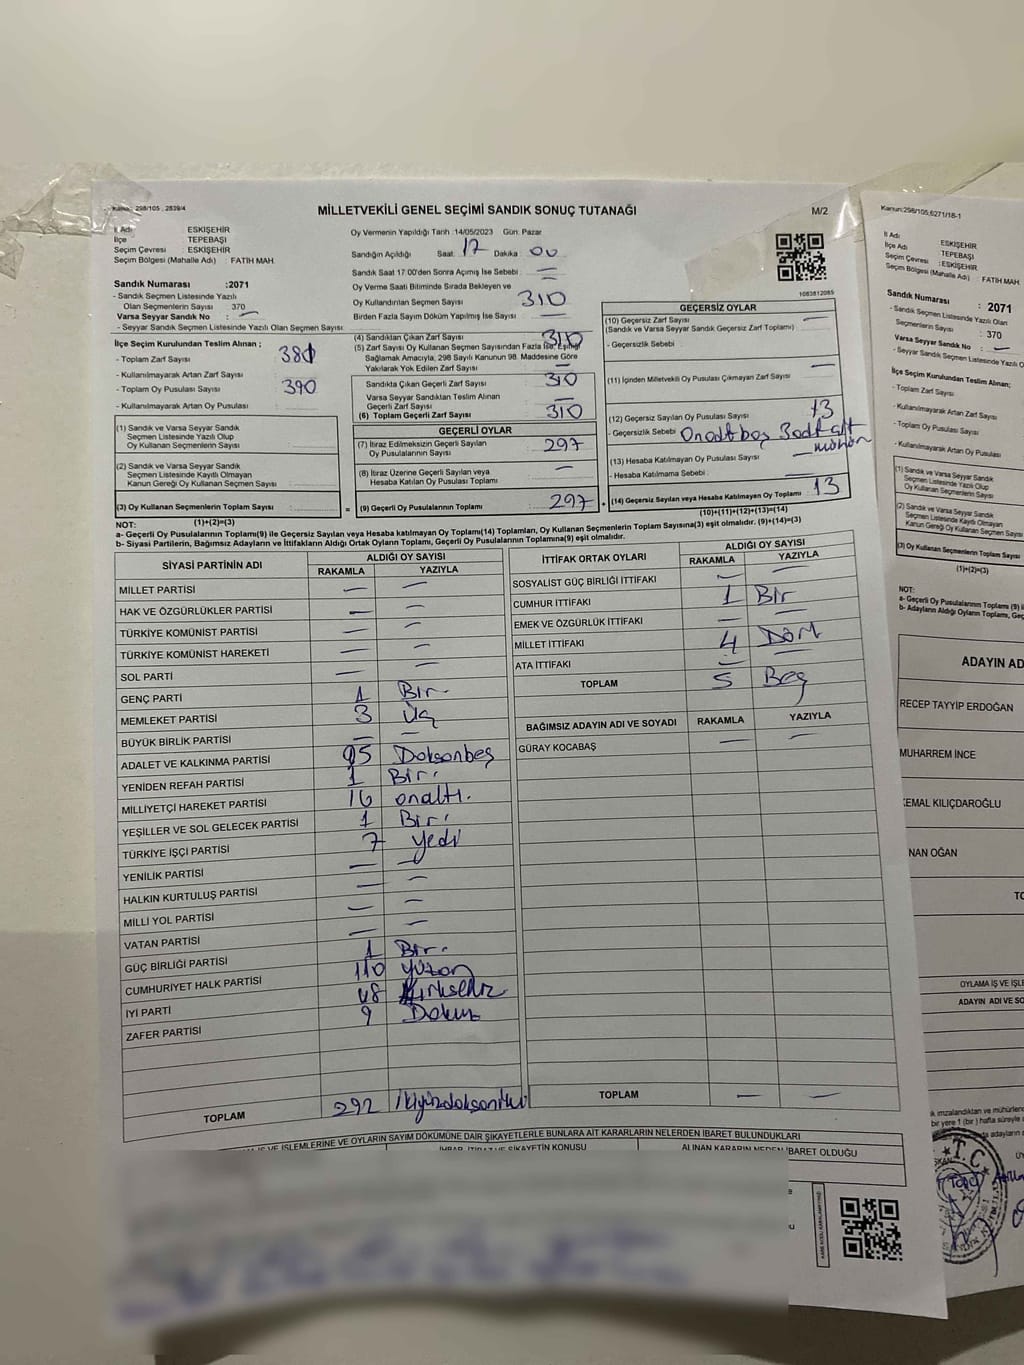 Kanun: 298/105, 2839/4
MİLLETVEKİLİ GENEL SEÇİMİ SANDIK SONUÇ TUTANAĞI
M/2
İl Adı ESKİŞEHİR
İlçe TEPEBAŞI
Seçim Çevresi ESKİŞEHİR
Seçim Bölgesi (Mahalle Adı) : FATİH MAH.
Sandık Numarası :2071
- Sandık Seçmen Listesinde Yazılı
Olan Seçmenlerin Sayısı 370
Varsa Seyyar Sandık No : —
- Seyyar Sandık Seçmen Listesinde Yazılı Olan Seçmen Sayısı
Oy Vermenin Yapıldığı Tarih :14/05/2023 Gün: Pazar
Sandığın Açıldığı Saat: 17 Dakika: 00
Sandık Saat 17:00'den Sonra Açılmış İse Sebebi : —
Oy Verme Saati Bitiminde Sırada Bekleyen ve
Oy Kullandırılan Seçmen Sayısı 310
Birden Fazla Sayım Döküm Yapılmış İse Sayısı : —
1083812085
İlçe Seçim Kurulundan Teslim Alınan ;
- Toplam Zarf Sayısı 380
- Kullanılmayarak Artan Zarf Sayısı
- Toplam Oy Pusulası Sayısı 390
- Kullanılmayarak Artan Oy Pusulası
(1) Sandık ve Varsa Seyyar Sandık
Seçmen Listesinde Yazılı Olup
Oy Kullanan Seçmenlerin Sayısı :
(2) Sandık ve Varsa Seyyar Sandık
Seçmen Listesinde Kayıtlı Olmayan
Kanun Gereği Oy Kullanan Seçmen Sayısı :
(3) Oy Kullanan Seçmenlerin Toplam Sayısı :
(1)+(2)=(3)
(4) Sandıktan Çıkan Zarf Sayısı 310
(5) Zarf Sayısı Oy Kullanan Seçmen Sayısından Fazla İse, Eşitliği
Sağlamak Amacıyla, 298 Sayılı Kanunun 98. Maddesine Göre
Yakılarak Yok Edilen Zarf Sayısı —
Sandıkta Çıkan Geçerli Zarf Sayısı 310
Varsa Seyyar Sandıktan Teslim Alınan
Geçerli Zarf Sayısı —
(6) Toplam Geçerli Zarf Sayısı 310
GEÇERLİ OYLAR
(7) İtiraz Edilmeksizin Geçerli Sayılan
Oy Pusulalarının Sayısı : 297
(8) İtiraz Üzerine Geçerli Sayılan veya
Hesaba Katılan Oy Pusulası Toplamı : —
= (9) Geçerli Oy Pusulalarının Toplamı : 297 +
GEÇERSİZ OYLAR
(10) Geçersiz Zarf Sayısı —
(Sandık ve Varsa Seyyar Sandık Geçersiz Zarf Toplamı)
- Geçersizlik Sebebi
(11) İçinden Milletvekili Oy Pusulası Çıkmayan Zarf Sayısı —
(12) Geçersiz Sayılan Oy Pusulası Sayısı 13
- Geçersizlik Sebebi
(13) Hesaba Katılmayan Oy Pusulası Sayısı —
- Hesaba Katılmama Sebebi :
(14) Geçersiz Sayılan veya Hesaba Katılmayan Oy Pusulası Toplamı : 13
(10)+(11)+(12)+(13)=(14)
NOT:
a- Geçerli Oy Pusulalarının Toplamı(9) ile Geçersiz Sayılan veya Hesaba katılmayan Oy Toplamı(14) Toplamları, Oy Kullanan Seçmenlerin Toplam Sayısına(3) eşit olmalıdır. (9)+(14)=(3)
b- Siyasi Partilerin, Bağımsız Adayların ve İttifakların Aldığı Ortak Oyların Toplamı, Geçerli Oy Pusulalarının Toplamına(9) eşit olmalıdır.
SİYASİ PARTİNİN ADI ALDIĞI OY SAYISI
RAKAMLA YAZIYLA
MİLLET PARTİSİ — —
HAK VE ÖZGÜRLÜKLER PARTİSİ — —
TÜRKİYE KOMÜNİST PARTİSİ — —
TÜRKİYE KOMÜNİST HAREKETİ — —
SOL PARTİ — —
GENÇ PARTİ 1 Bir.
MEMLEKET PARTİSİ 3 Üç
BÜYÜK BİRLİK PARTİSİ — —
ADALET VE KALKINMA PARTİSİ 95 Doksanbeş
YENİDEN REFAH PARTİSİ 1 Bir.
MİLLİYETÇİ HAREKET PARTİSİ 16 onaltı.
YEŞİLLER VE SOL GELECEK PARTİSİ 1 Bir.
TÜRKİYE İŞÇİ PARTİSİ 7 yedi
YENİLİK PARTİSİ — —
HALKIN KURTULUŞ PARTİSİ — —
MİLLİ YOL PARTİSİ — —
VATAN PARTİSİ — —
GÜÇ BİRLİĞİ PARTİSİ 1 Bir.
CUMHURİYET HALK PARTİSİ 110 yüzon
İYİ PARTİ 48 Kırksekiz
ZAFER PARTİSİ 9 Dokuz
TOPLAM 292 İkiyüzdoksaniki
İTTİFAK ORTAK OYLARI ALDIĞI OY SAYISI
RAKAMLA YAZIYLA
SOSYALİST GÜÇ BİRLİĞİ İTTİFAKI — —
CUMHUR İTTİFAKI 1 Bir
EMEK VE ÖZGÜRLÜK İTTİFAKI — —
MİLLET İTTİFAKI 4 Dört
ATA İTTİFAKI — —
TOPLAM 5 Beş
BAĞIMSIZ ADAYIN ADI VE SOYADI RAKAMLA YAZIYLA
GÜRAY KOCABAŞ — —
TOPLAM — —
İŞ VE İŞLEMLERİNE VE OYLARIN SAYIM DÖKÜMÜNE DAİR ŞİKAYETLERLE BUNLARA AİT KARARLARIN NELERDEN İBARET BULUNDUKLARI
İHBAR, İTİRAZ VE ŞİKAYETİN KONUSU ALINAN KARARIN NEDEN İBARET OLDUĞU
Kanun:298/105,6271/18-1
İl Adı : ESKİŞEHİR
İlçe : TEPEBAŞI
Seçim Çevresi : ESKİŞEHİR
Seçim Bölgesi (Mahalle Adı) : FATİH MAH
Sandık Numarası : 2071
- Sandık Seçmen Listesinde Yazılı O
Seçmenlerin Sayısı : 370
Varsa Seyyar Sandık No : —
- Seyyar Sandık Seçmen Listesinde Yazılı O
İlçe Seçim Kurulundan Teslim Alınan;
- Toplam Zarf Sayısı
- Kullanılmayarak Artan Zarf Sayısı
- Toplam Oy Pusulası Sayısı
- Kullanılmayarak Artan Oy Pusulası
(1) Sandık ve Varsa Seyyar Sandık
Seçmen Listesinde Yazılı Olup
Oy Kullanan Seçmenlerin Sayısı
(2) Sandık ve Varsa Seyyar Sandık
Seçmen Listesinde Kayıtlı Olmayan
Kanun Gereği Oy Kullanan Seçmen Sayısı
(3) Oy Kullanan Seçmenlerin Toplam Sayısı
(1)+(2)=(3)
NOT:
a- Geçerli Oy Pusulalarının Toplamı (9) i
b- Adayların Aldığı Oyların Toplamı, Geç
ADAYIN AD
RECEP TAYYİP ERDOĞAN
MUHARREM İNCE
KEMAL KILIÇDAROĞLU
NAN OĞAN
TO
OYLAMA İŞ VE İŞLE
ADAYIN ADI VE SO
k imzalandıktan ve mühürlend
bir yere 1 (bir) hafta süreyle
da adayların
T.C.